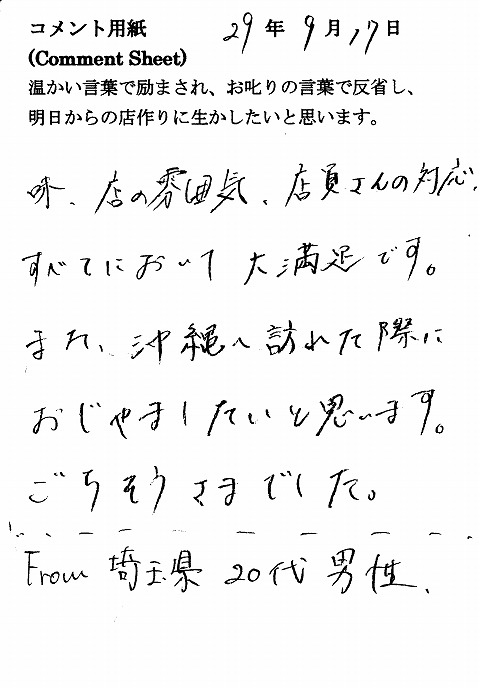 コメント用紙 29年9月17日
(Comment Sheet)
温かい言葉で励まされ、お叱りの言葉で反省し、
明日からの店作りに生かしたいと思います。
味、店の雰囲気、店員さんの対応、
すべてにおいて大満足です。
また、沖縄へ訪れた際に
おじゃましたいと思います。
ごちそうさまでした。
From 埼玉県 20代 男性、